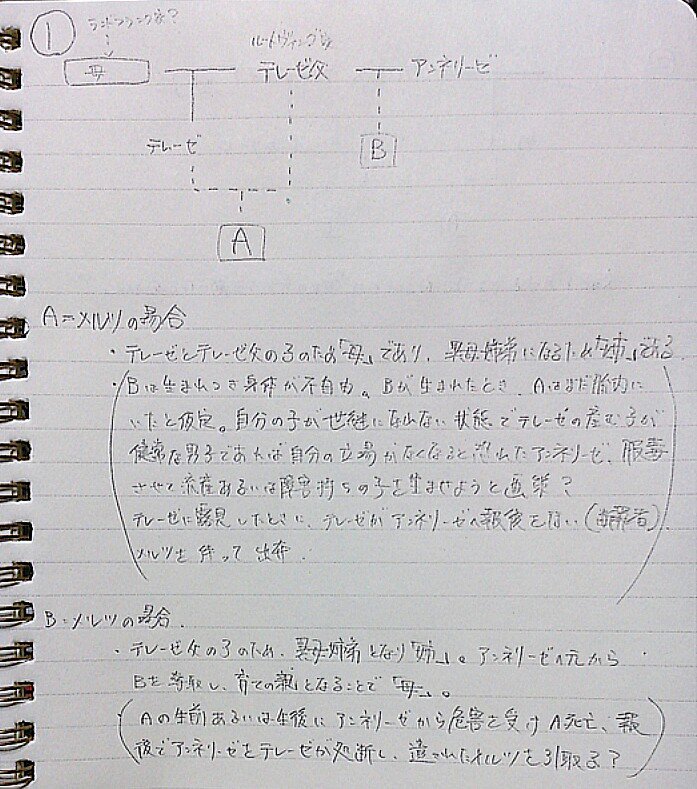 ① ラントフランク家?
ルートヴィング家
母 テレーゼ父 アンネリーゼ
テレーゼ B
A
A=メルツの場合
・テレーゼとテレーゼ父の子のため「母」であり、異母姉弟になるため「姉」である
・Bは生まれつき身体が不自由。Bが生まれたとき、Aはまだ胎内に
いたと仮定。自分の子が世継になれない状態でテレーゼの産む子が
健常な男子であれば自分の立場がなくなると恐れたアンネリーゼ、服毒
させて流産あるいは障害持ちの子を生ませようと画策?
テレーゼに露見したときに、テレーゼがアンネリーゼへ報後を
メルツを伴って出奔.
B=メルツの場合.
・テレーゼ父の子のため、異母姉弟となり「姉」。アンネリーゼの元から
Bを奪取し、育ての親となることで「母」。
(Aの生前あるいは生後にアンネリーゼから危害を受けA死亡、報
後でアンネリーゼをテレーゼが処断し、遺されたメルツを引取る?)